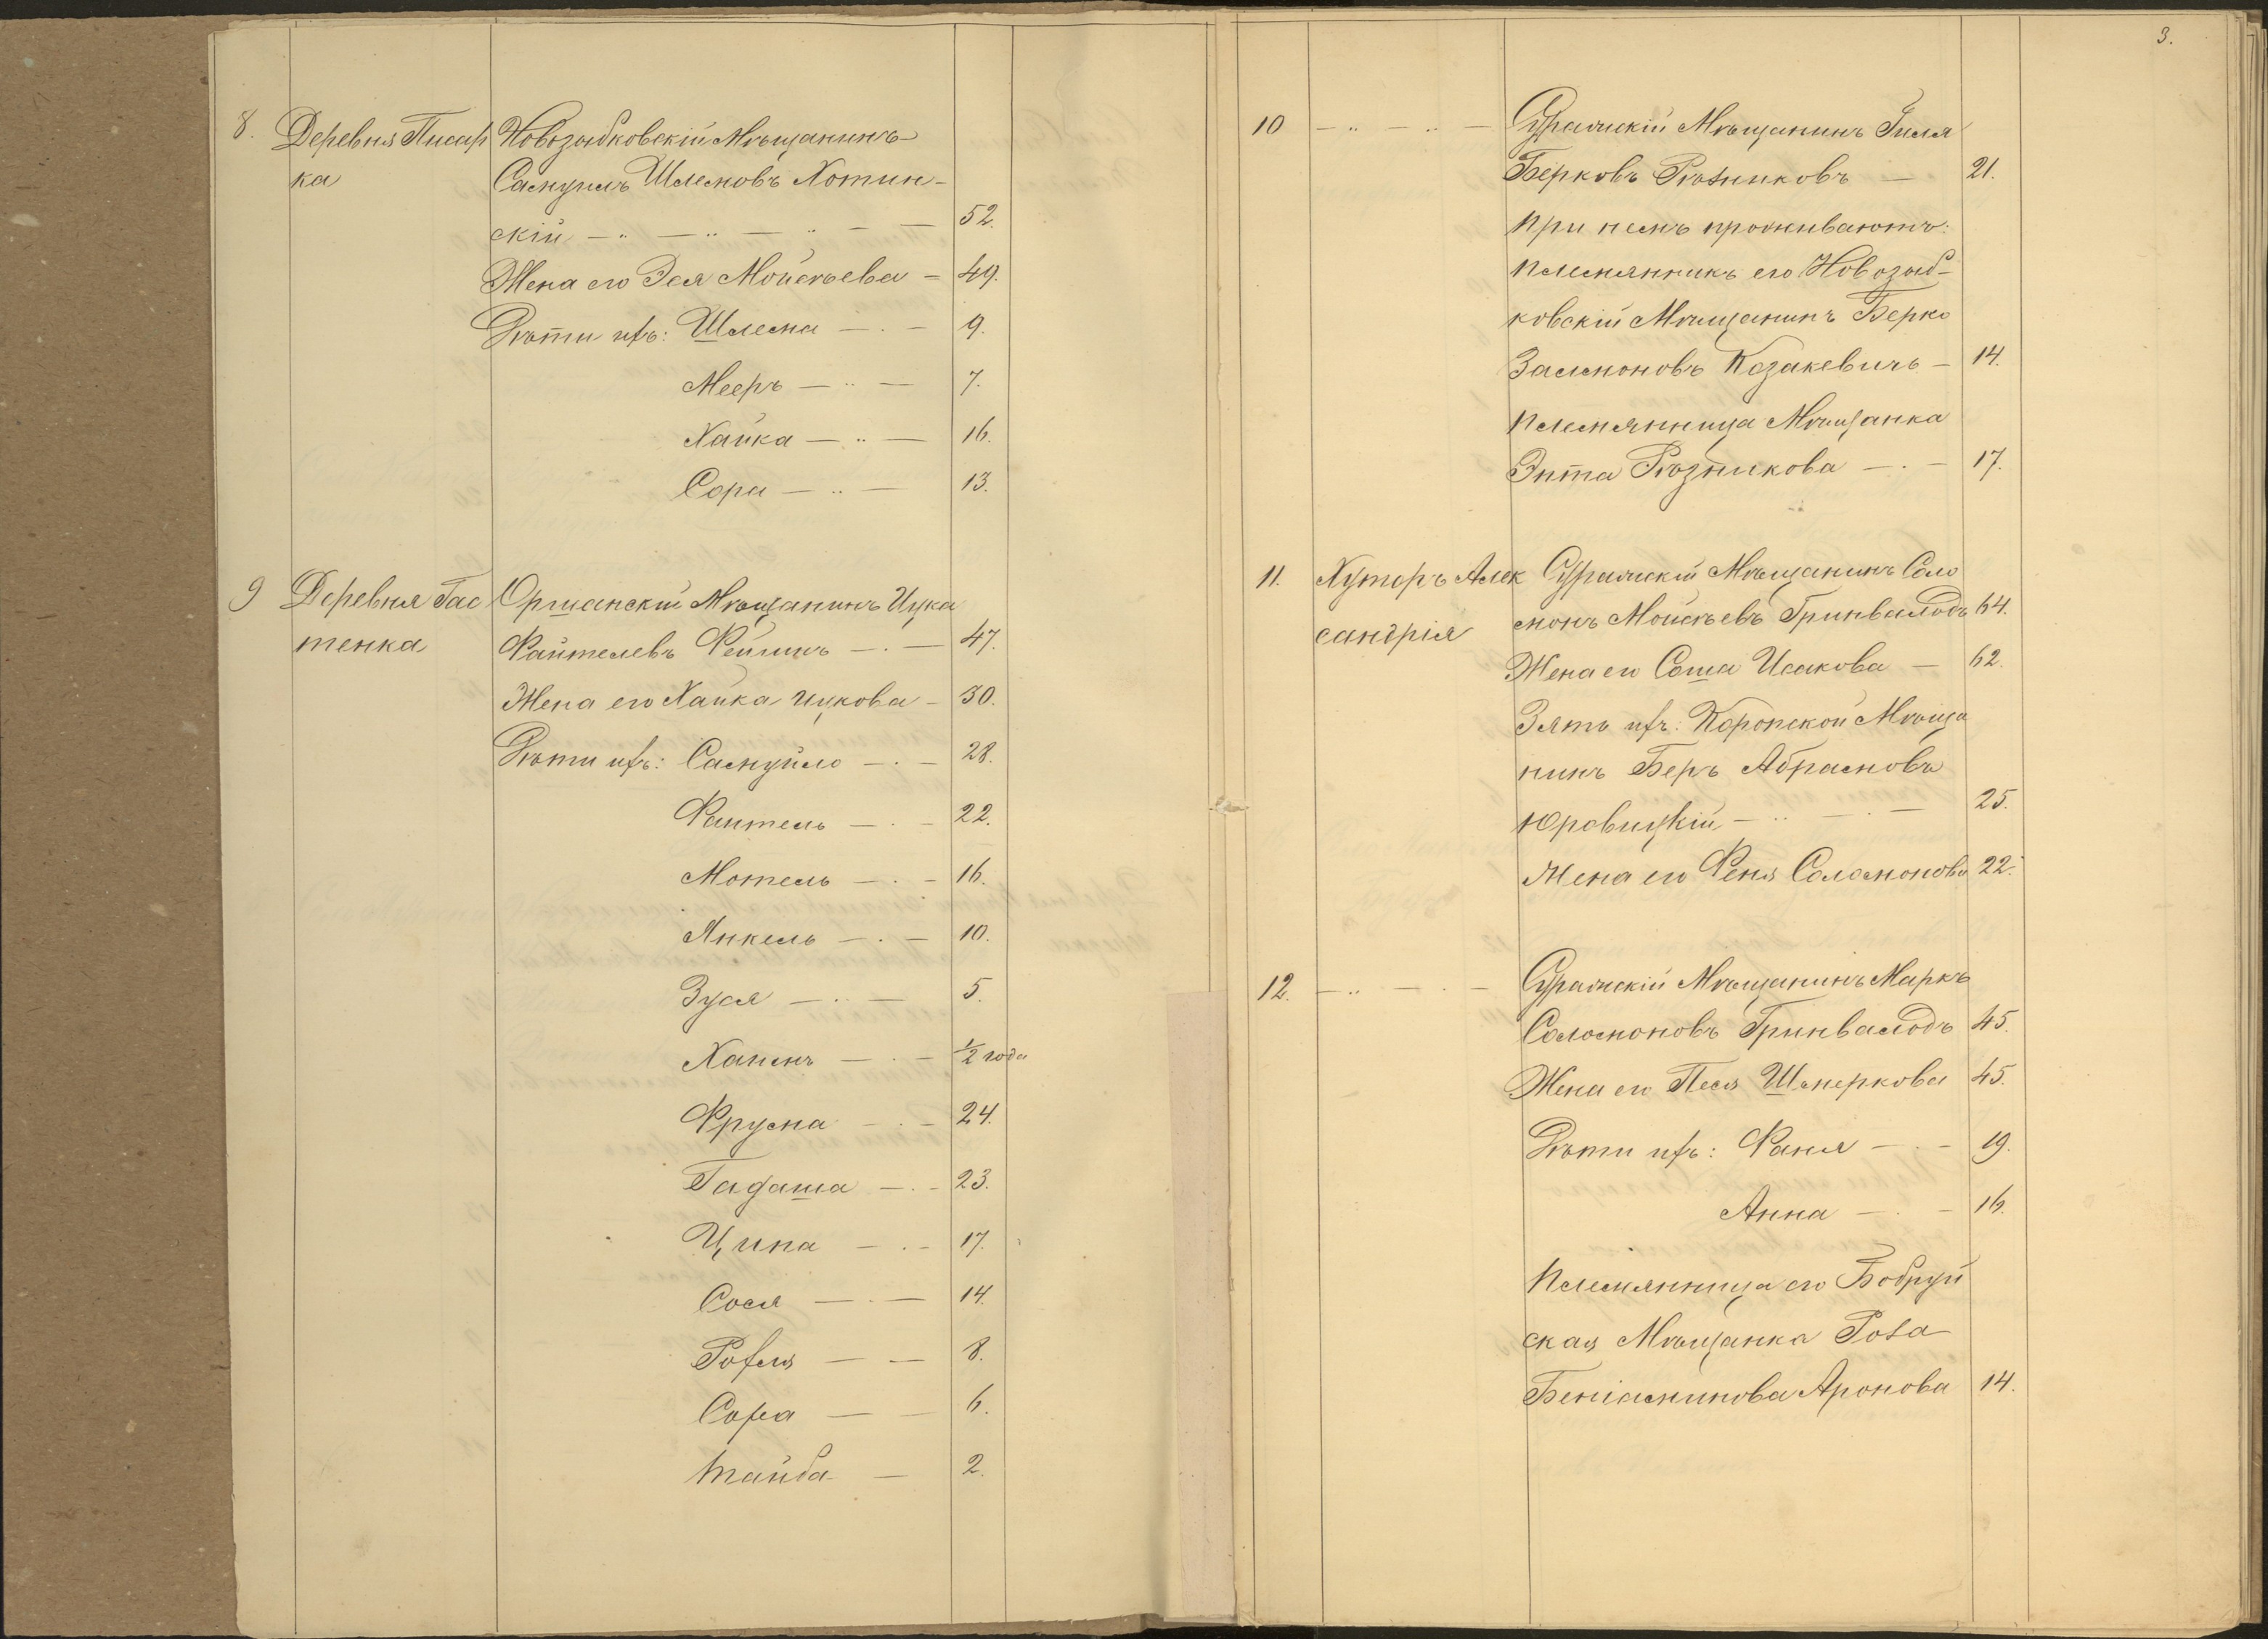 8. Деревня Писар Новозыбковскій Мѣщанинъ
ка Самуилъ Шлемовъ Хотин-
скій — „ — „ — „ — — 52.
Жена его Эся Мойсѣева — 49.
Дѣти ихъ: Шлема — . — 9.
Мееръ — „ — 7.
Хайка — „ — 16.
Сора — „ — 13.
9 Деревня Гас Оршанскій Мѣщанинъ Ицка
тенка Файтелевъ Фейгинъ — . — 47.
Жена его Хайка Ицкова — 30.
Дѣти ихъ: Самуйло — . — 28.
Фаитель — . — 22.
Мотель — . — 16.
Янкель — . — 10.
Зуся — „ — 5.
Хаимъ — . — ½ года
Фрума — . — 24.
Гадаша — . — 23.
Ципа — . — 17.
Сося — . — 14.
Рохля — — 8.
Сора — — 6.
Тайба — 2.
3.
10 — „ — „ — Суражскій Мѣщанинъ Гиля
Берковъ Рѣзниковъ — 21.
При немъ проживаютъ:
Племянникъ его Новозыб-
ковскій Мѣщанинъ Берко
Залмоновъ Козакевичъ — 14.
Племянница Мѣщанка
Эпта Рѣзникова — . — 17.
11. Хуторъ Алек Суражскій Мѣщанинъ Соло
сандрія монъ Мойсѣевъ Гринвальдъ 64.
Жена его Соша Исакова — 62.
Зять ихъ: Коропской Мѣща
нинъ Беръ Абрамовъ
Юровицкій — „ — . — 25.
Жена его Феня Соломонова 22.
12. — „ — . — Суражскій Мѣщанинъ Маркъ
Соломоновъ Гринвальдъ 45.
Жена его Песя Шмеркова 45.
Дѣти ихъ: Фаня — . — 19.
Анна — . — 16.
Племянница его Бобруй
ская Мѣщанка Роза
Беніаминова Аронова 14.